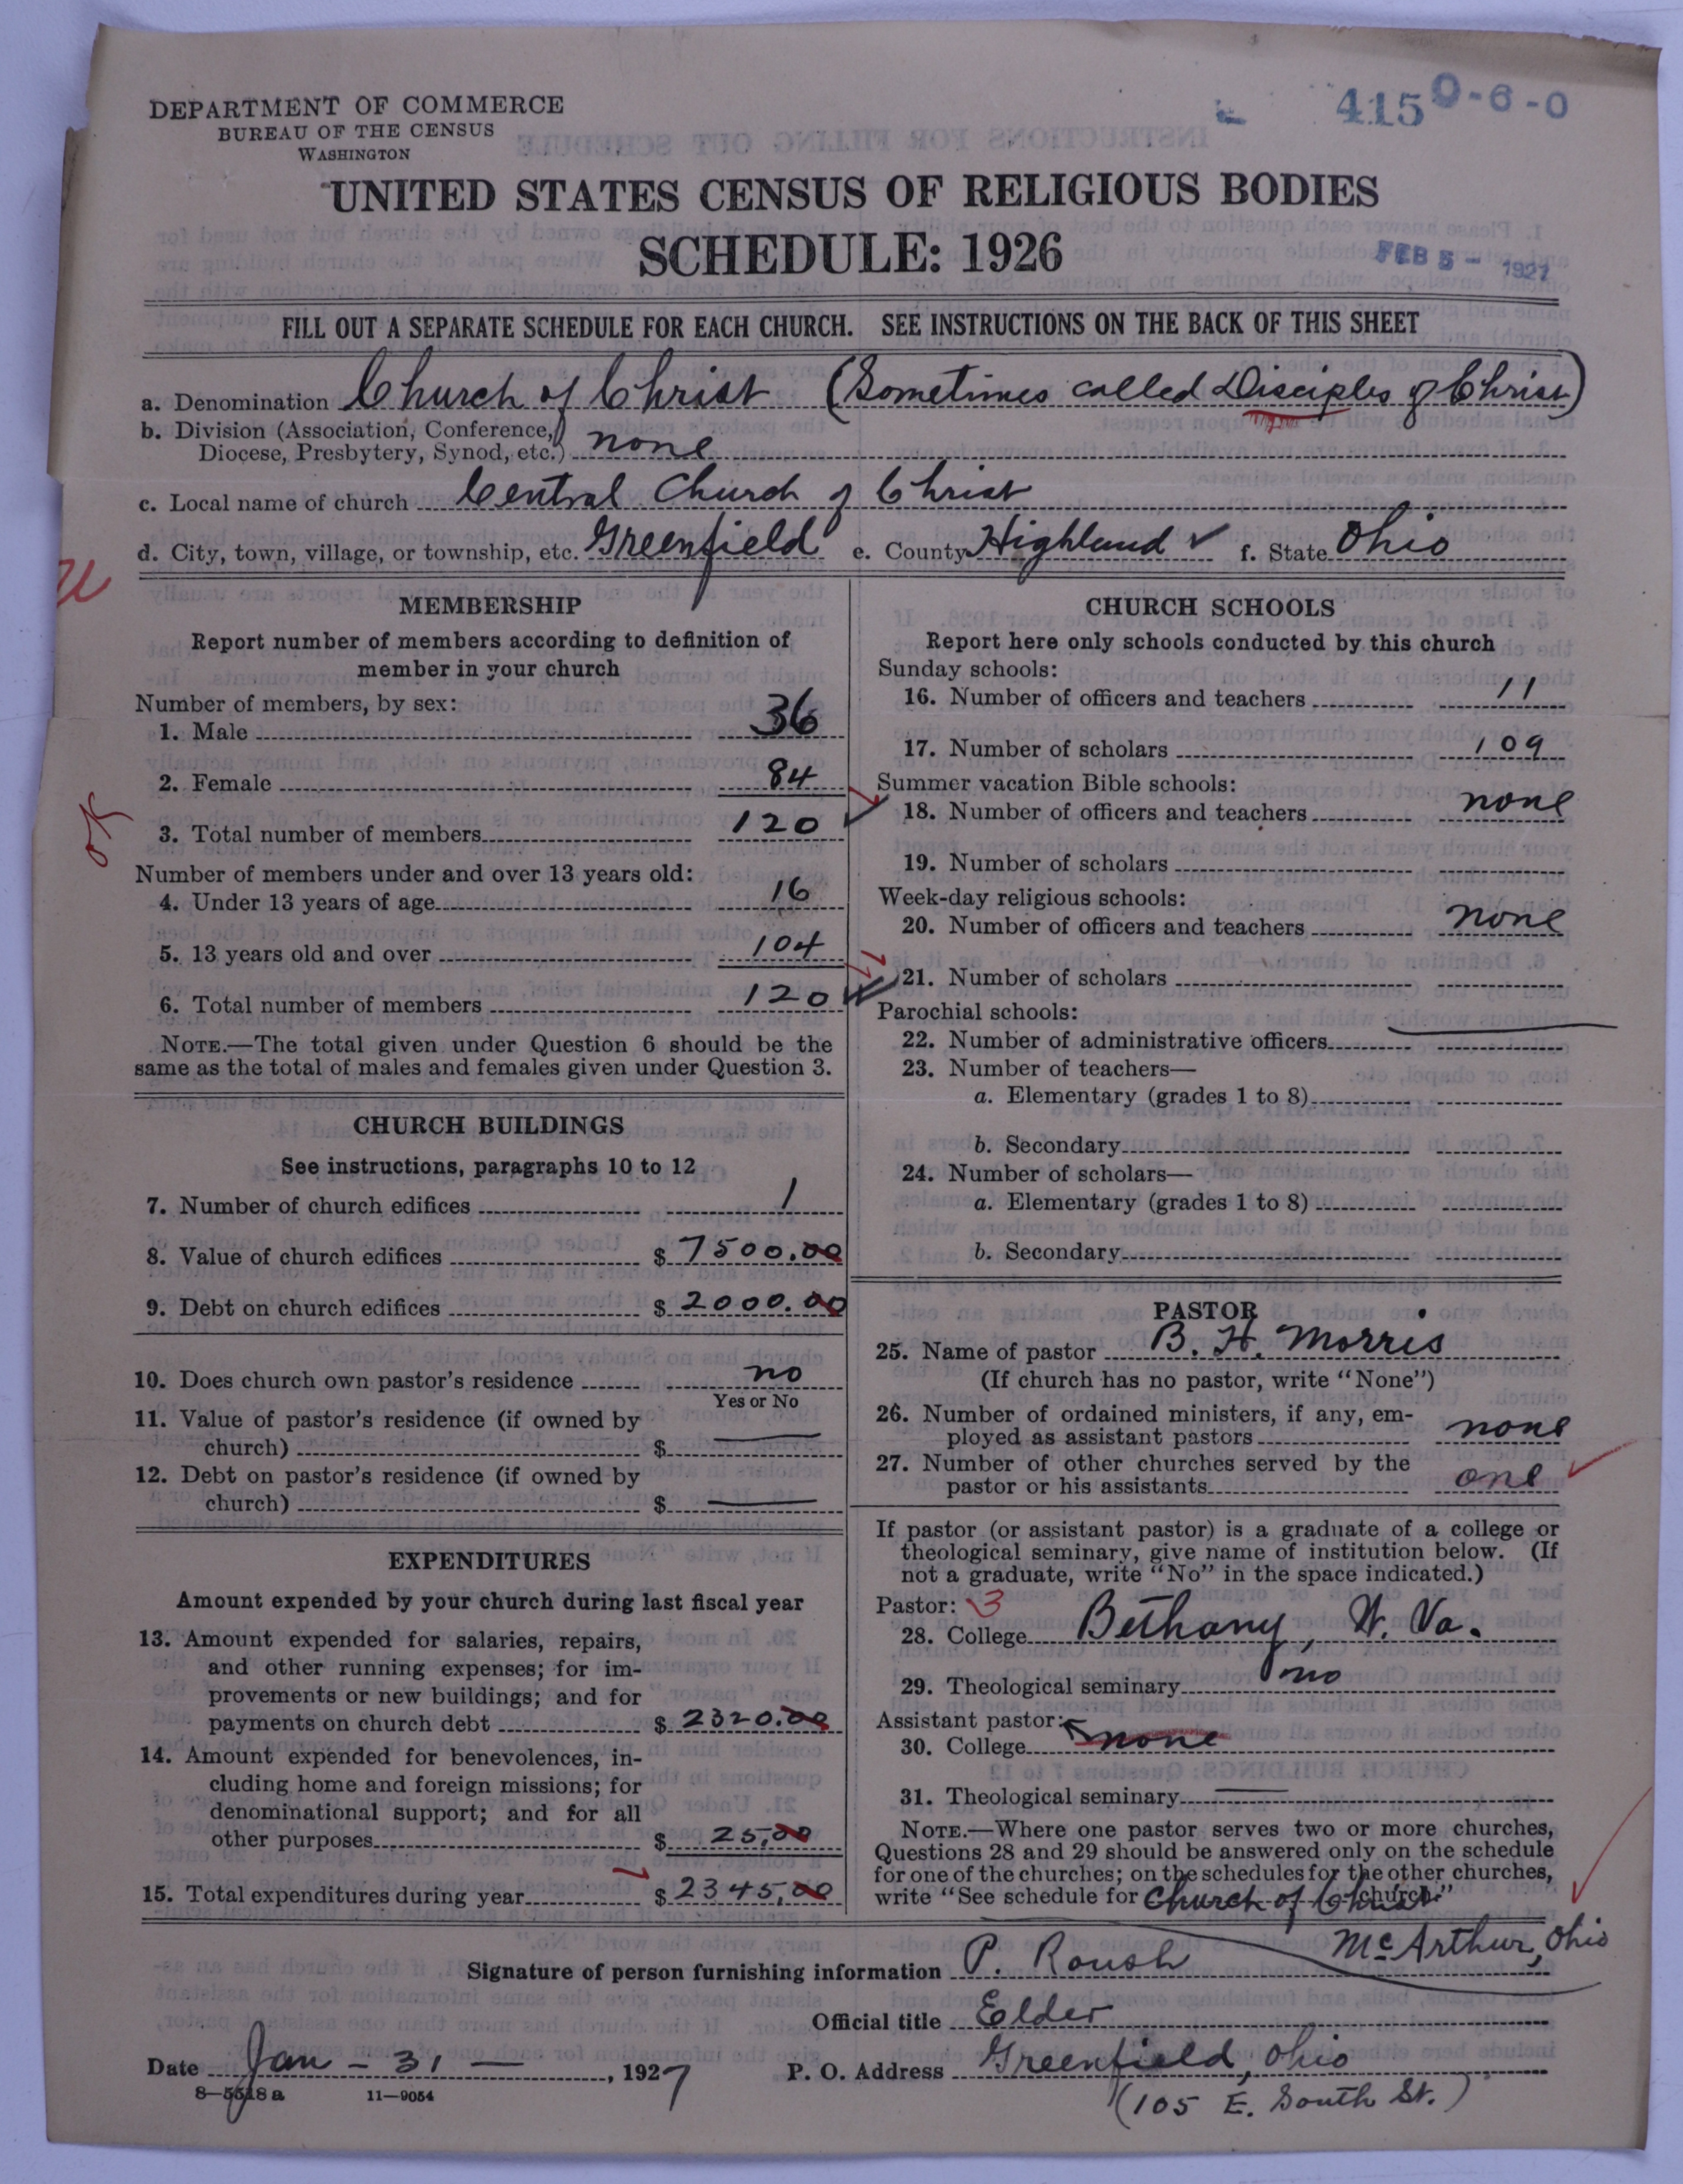 DEPARTMENT OF COMMERCE
BUREAU OF THE CENSUS
WASHINGTON
415 0-6-0
UNITED STATES CENSUS OF RELIGIOUS BODIES
SCHEDULE: 1926
FEB 5 - 1927
FILL OUT A SEPARATE SCHEDULE FOR EACH CHURCH. SEE INSTRUCTIONS ON THE BACK OF THIS SHEET
a. Denomination Church of Christ (Sometimes called Disciples of Christ)
b. Division (Association, Conference, Diocese, Presbytery, Synod, etc.) none
c. Local name of church Central Church of Christ
d. City, town, village, or township, etc. Greenfield e. County Highland ✓ f. State Ohio
MEMBERSHIP
Report number of members according to definition of
member in your church
Number of members, by sex:
1. Male 36
2. Female 84
OK
3. Total number of members 120 ✓
Number of members under and over 13 years old:
4. Under 13 years of age 16
5. 13 years old and over 104
6. Total number of members 120 ✓
NOTE.—The total given under Question 6 should be the
same as the total of males and females given under Question 3.
CHURCH BUILDINGS
See instructions, paragraphs 10 to 12
7. Number of church edifices 1
8. Value of church edifices $ 7500.00
9. Debt on church edifices $ 2000.00
10. Does church own pastor's residence no
Yes or No
11. Value of pastor's residence (if owned by
church) $ —
12. Debt on pastor's residence (if owned by
church) $ —
EXPENDITURES
Amount expended by your church during last fiscal year
13. Amount expended for salaries, repairs,
and other running expenses; for im-
provements or new buildings; and for
payments on church debt $ 2320.00
14. Amount expended for benevolences, in-
cluding home and foreign missions; for
denominational support; and for all
other purposes $ 25,00
15. Total expenditures during year $ 2345,00
CHURCH SCHOOLS
Report here only schools conducted by this church
Sunday schools:
16. Number of officers and teachers 11
17. Number of scholars 109
Summer vacation Bible schools:
18. Number of officers and teachers none
19. Number of scholars
Week-day religious schools:
20. Number of officers and teachers none
21. Number of scholars
Parochial schools:
22. Number of administrative officers
23. Number of teachers—
a. Elementary (grades 1 to 8)
b. Secondary
24. Number of scholars—
a. Elementary (grades 1 to 8)
b. Secondary
PASTOR
25. Name of pastor B. H. Morris
(If church has no pastor, write "None")
26. Number of ordained ministers, if any, em-
ployed as assistant pastors none
27. Number of other churches served by the
pastor or his assistants one ✓
If pastor (or assistant pastor) is a graduate of a college or
theological seminary, give name of institution below. (If
not a graduate, write "No" in the space indicated.)
Pastor: 3
28. College Bethany, W. Va.
29. Theological seminary no
Assistant pastor:
30. College none
31. Theological seminary —
NOTE.—Where one pastor serves two or more churches,
Questions 28 and 29 should be answered only on the schedule
for one of the churches; on the schedules for the other churches,
write "See schedule for Church of Christ church."
McArthur, Ohio
Signature of person furnishing information P. Roush
Official title Elder
Date Jan - 31 —, 1927 P. O. Address Greenfield, Ohio
8—5518 a 11—9054
(105 E. South St.)